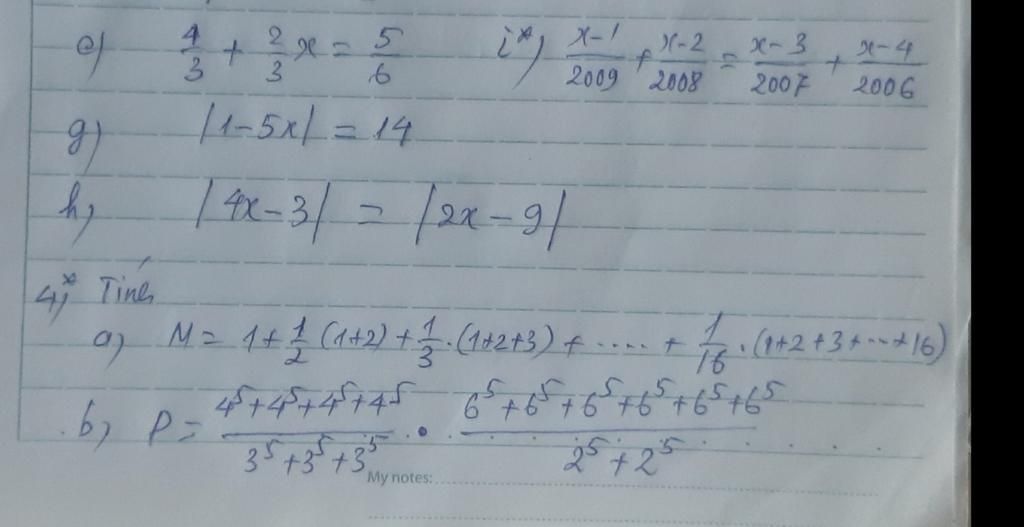 e) 4/3 + 2/3 x = 5/6
i*) x-1/2009 + x-2/2008 = x-3/2007 + x-4/2006
g) |1-5x| = 14
h) |4x-3| = |2x-9|
4*) Tính
a) M = 1 + 1/2 (1+2) + 1/3 . (1+2+3) + ..... + 1/16 . (1+2+3+...+16)
b) P = 4⁵+4⁵+4⁵+4⁵/3⁵+3⁵+3⁵ . 6⁵+6⁵+6⁵+6⁵+6⁵+6⁵/2⁵+2⁵
My notes: